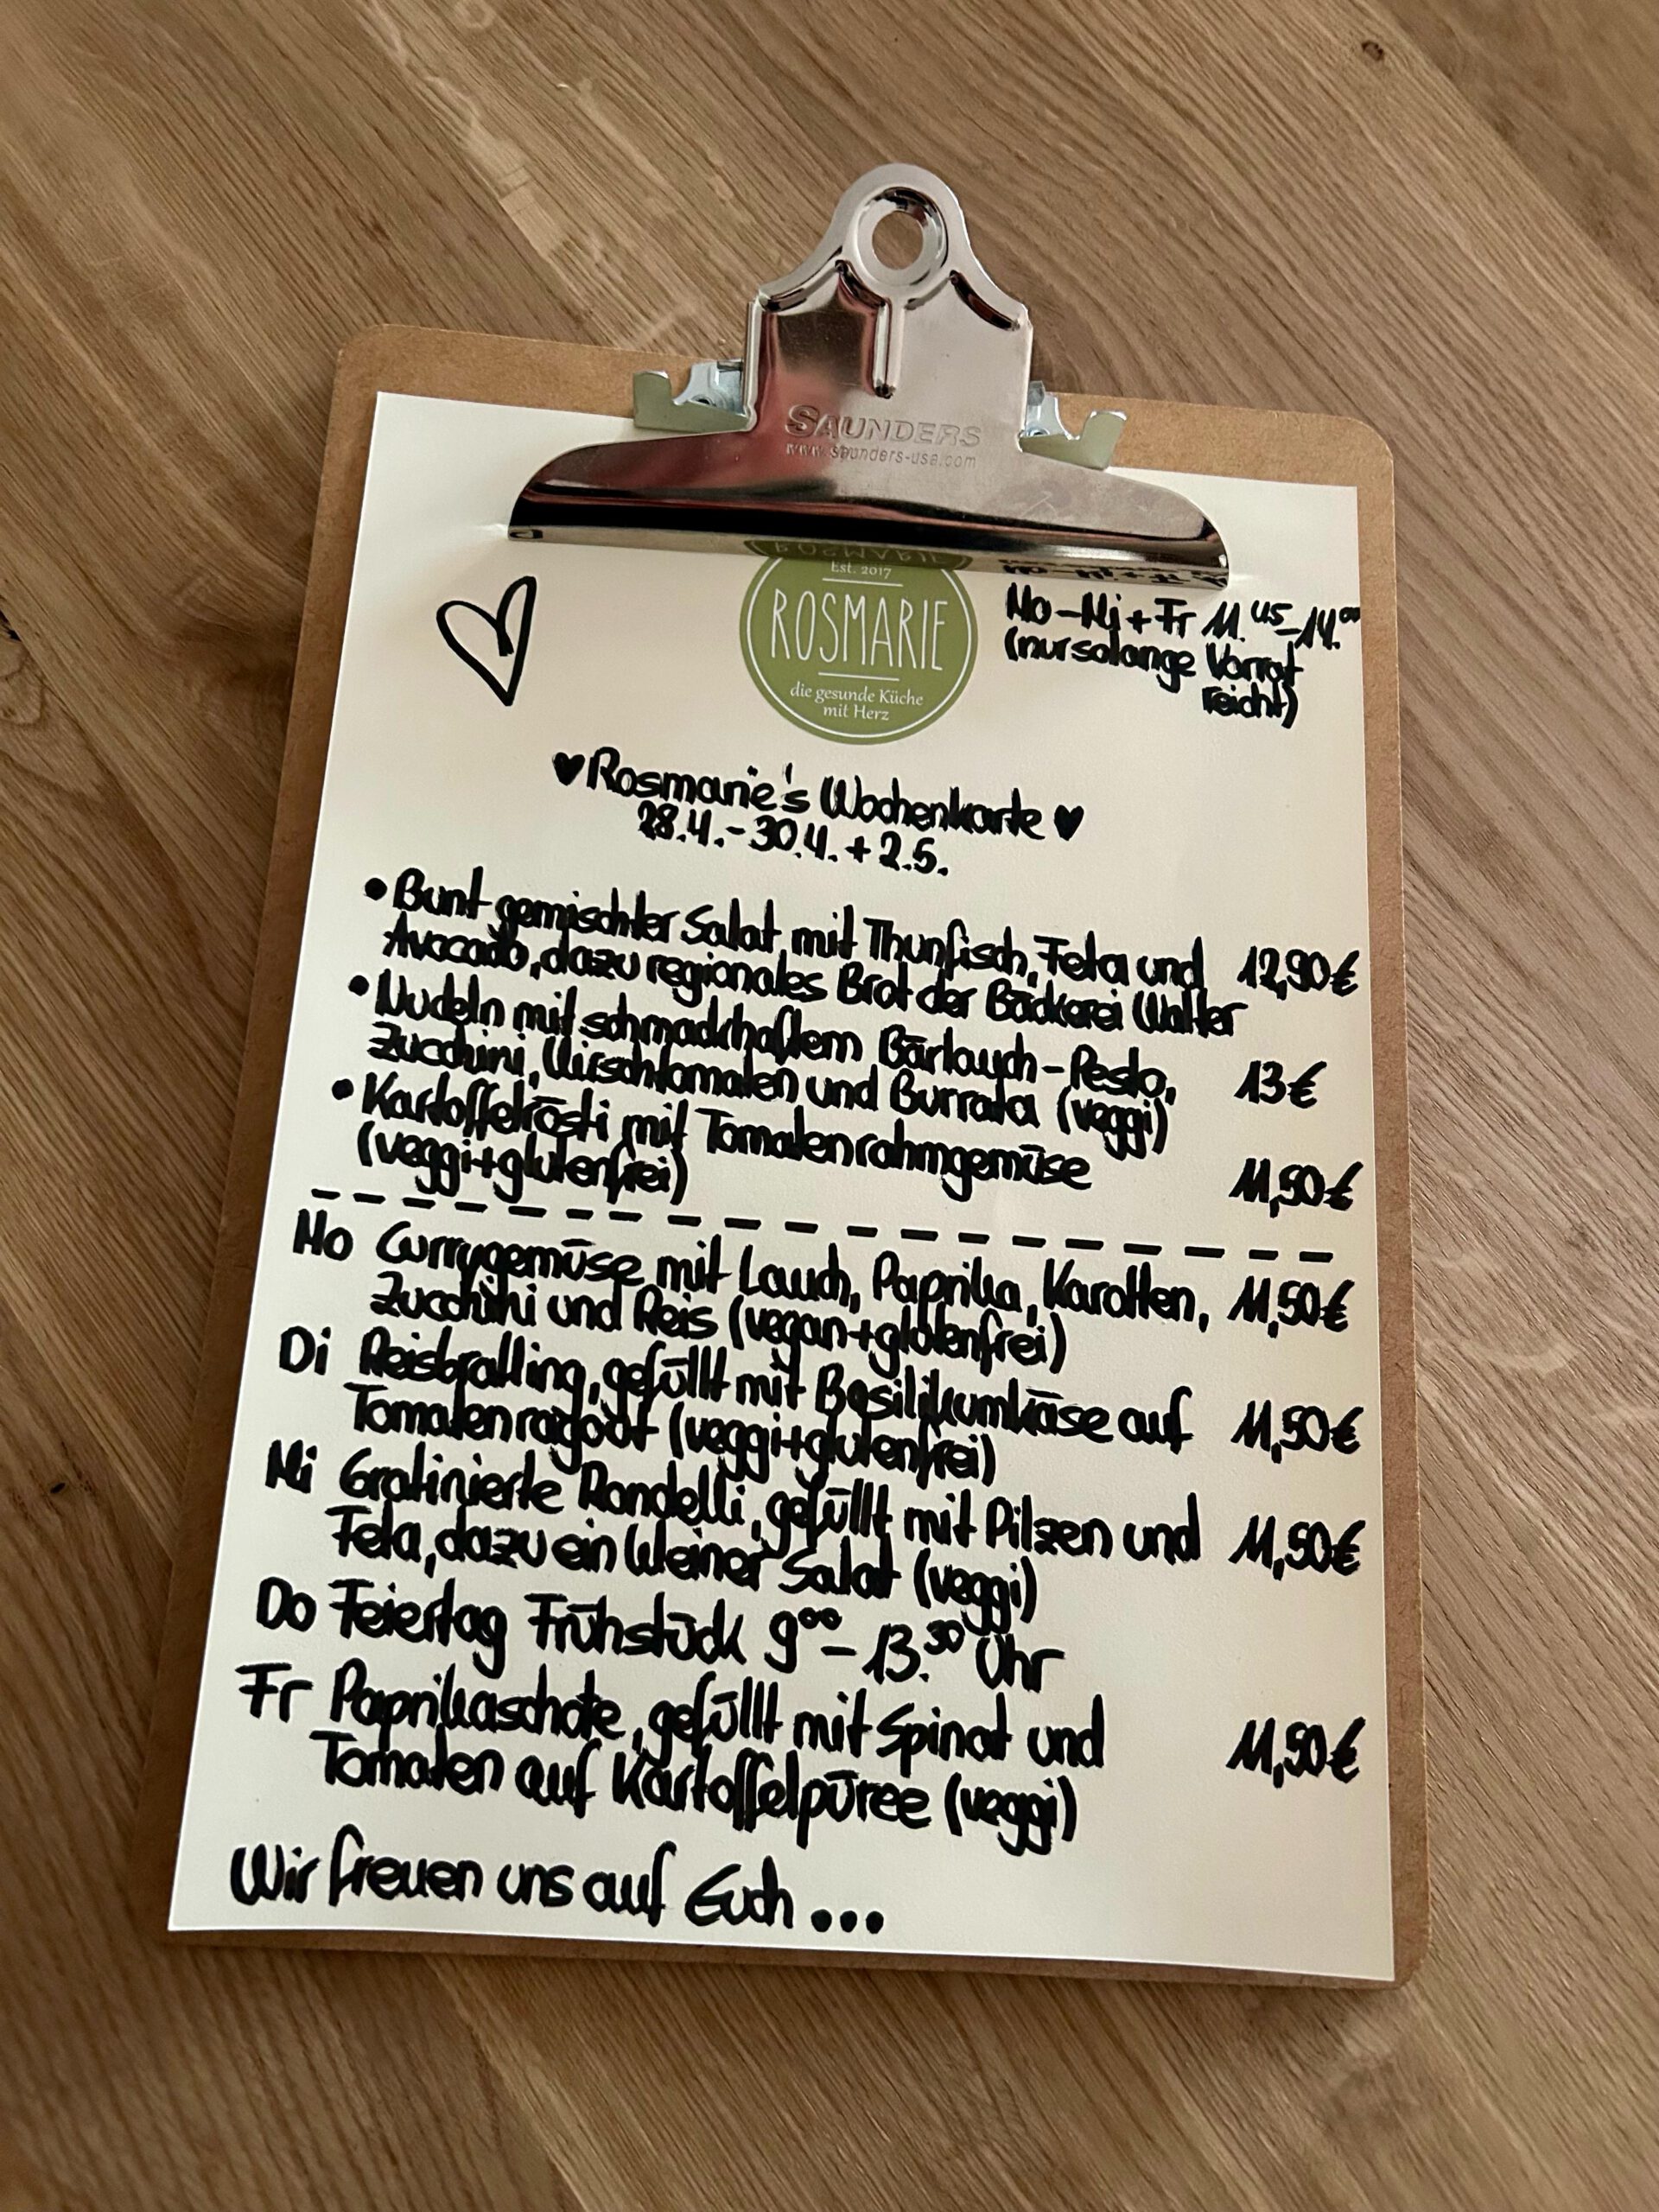 SAUNDERS
www.saunders-usa.com
Est. 2017
ROSMARIE
die gesunde Küche
mit Herz
Mo-Mi+Fr 11.45-14.00
(nur solange Vorrat
reicht)
♥Rosmarie's Wochenkarte♥
28.4.-30.4.+2.5.
• Bunt gemischter Salat mit Thunfisch, Feta und 12,90€
Avocado, dazu regionales Brot der Bäckerei Walter
• Nudeln mit schmackhaftem Bärlauch-Pesto, 13€
Zucchini, Kirschtomaten und Burrata (veggi)
• Kartoffelrösti mit Tomatenrahmgemüse 11,50€
(veggi+glutenfrei)
Mo Currygemüse mit Lauch, Paprika, Karotten, 11,50€
Zucchini und Reis (vegan+glutenfrei)
Di Reisbratling, gefüllt mit Basilikumkäse auf 11,50€
Tomatenragout (veggi+glutenfrei)
Mi Gratinierte Rondelli, gefüllt mit Pilzen und 11,50€
Feta, dazu ein kleiner Salat (veggi)
Do Feiertag Frühstück 9.00-13.30 Uhr
Fr Paprikaschote, gefüllt mit Spinat und 11,50€
Tomaten auf Kartoffelpüree (veggi)
Wir freuen uns auf Euch...